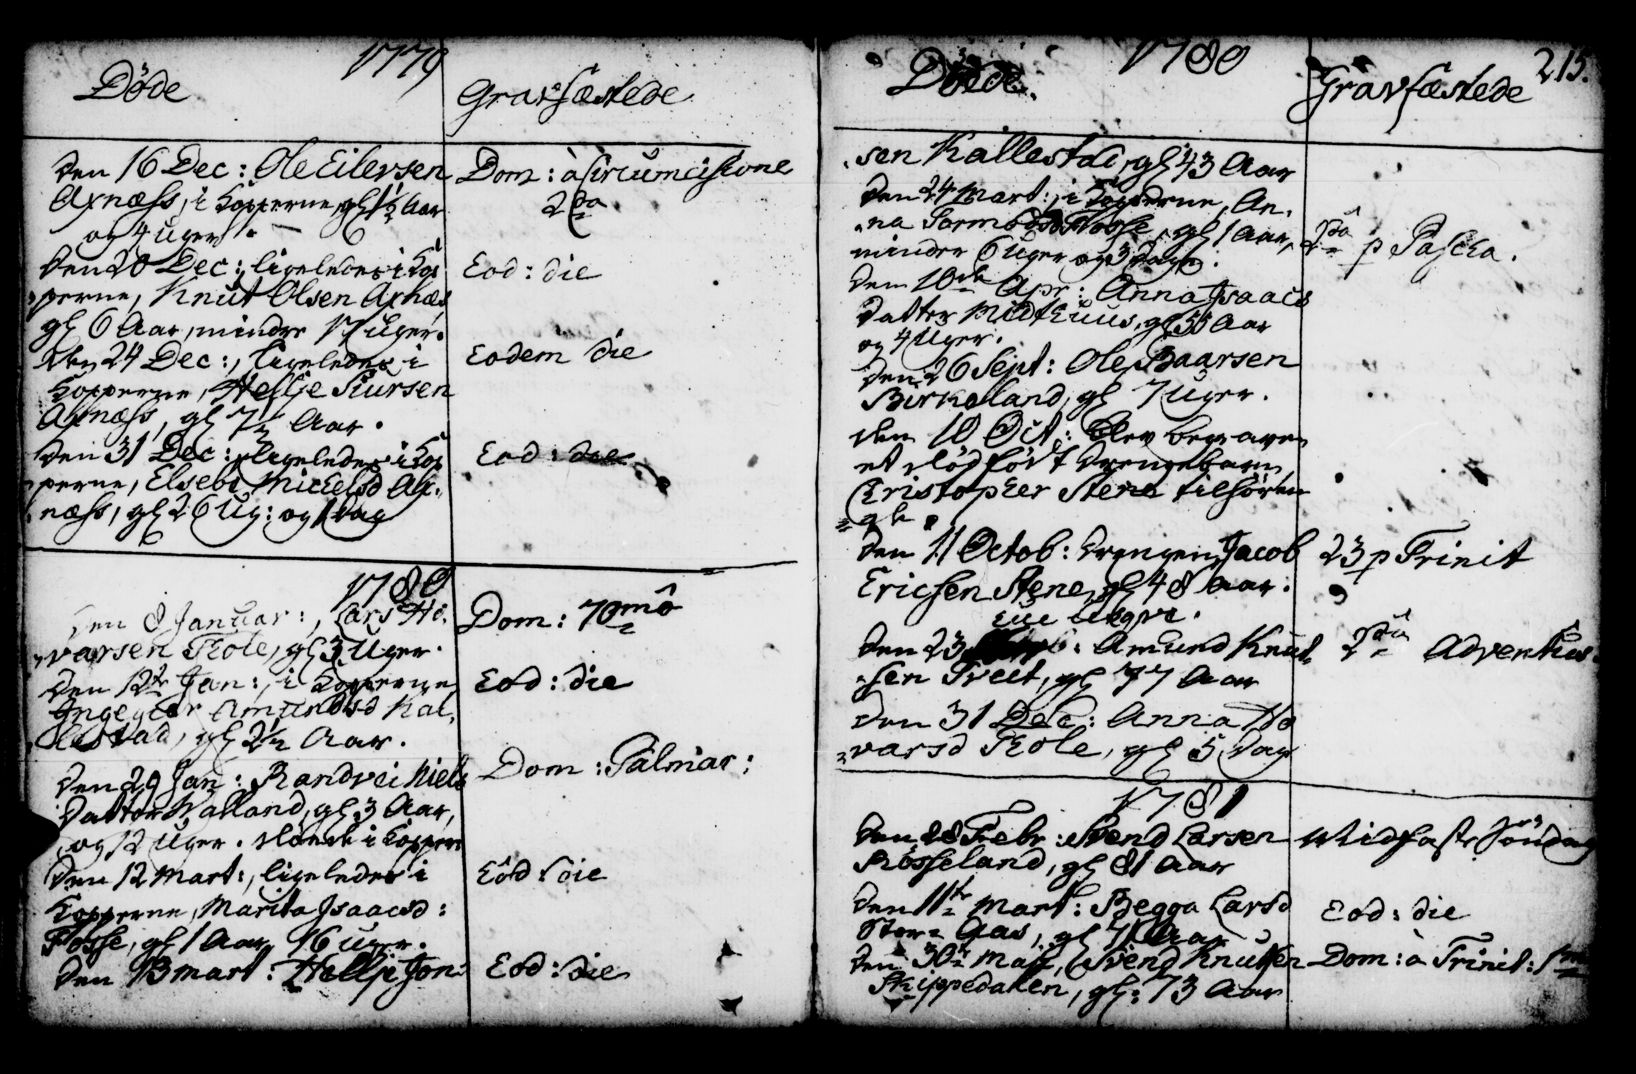 1779
Døde
Gravfæstede
Den 16 Dec: Ole Eilevsen
Axnæss, i Kopperne, gl 1½ Aar
og 4 Uger.
Dom: à Circumcisione
2da
Den 20 Dec: ligeledes i Kop
perne, Knut Olsen Axnæs
gl 6 Aar, mindre 17 Uger.
Eod: die
Den 24 Dec:, ligeledes i
Kopperne, Hellje Siursen
Axnæss, gl 7½ Aar.
Eodem die
Den 31 Dec: ligeledes i Kop
perne, Elsebe Michelsd Ax-
næss, gl 26 Ug: og 1 Dag
Eod: die
1780
Den 8 Januar:, Lars Ho-
varsen Tkole, gl 3 Uger.
Dom: 70mâ
Den 12te Jan:, i Kopperne
Ingegier Amundsd Kal-
lestad, gl 2½ Aar.
Eod: die
Den 29 Jan: Randvei Niels
Datter Valland, gl 3 Aar,
og 12 Uger. døde i Kopper
Dom: Palmar:
Den 12 Mart:, ligeledes i
Kopperne, Marita Isaacsd:
Fosse, gl 1 Aar 16 Uger.
Eod: die
Den 13 Mart: Hellje Jon-
Eod: die
1780
215.
Døde.
Gravfæstede
sen Kallestad, gl 43 Aar
Den 24 Mart:, i Kopperne, An-
na Tormodsd Fosse, gl 1 Aar,
minder 6 Uger og 3 Dage.
2da p Pascha.
Den 10de Apr: Anna Isaacs
Datter Midthuus, gl 55 Aar
og 4 Uger.
Den 26 Sept: Ole Baarsen
Birkeland, gl 7 Uger.
Den 10 Oct: blev begraven
et dødfødt Drengebarn,
Christopher Stene tilhøren
de.
Den 11 Octob: Drengen Jacob
Ericsen Stene, gl 48 Aar.
23 p Trinit
Den 23 : Amund Knut-
sen Tveit, gl 77 Aar
2da Adventûs
Den 31 Dec: Anna Ho
varsd Tkole, gl 5 Dag
1781
Den 28 Febr: Svend Larsen
Rosseland, gl 81 Aar
Midfaste Söndag
Den 11te Mart: Begga Larsd
Store Aas, gl 71 Aar
Eod: die
Den 30te Maji, Svend Knutsen
Skippedalen, gl: 73 Aar
Dom: à Trinit: 1ma